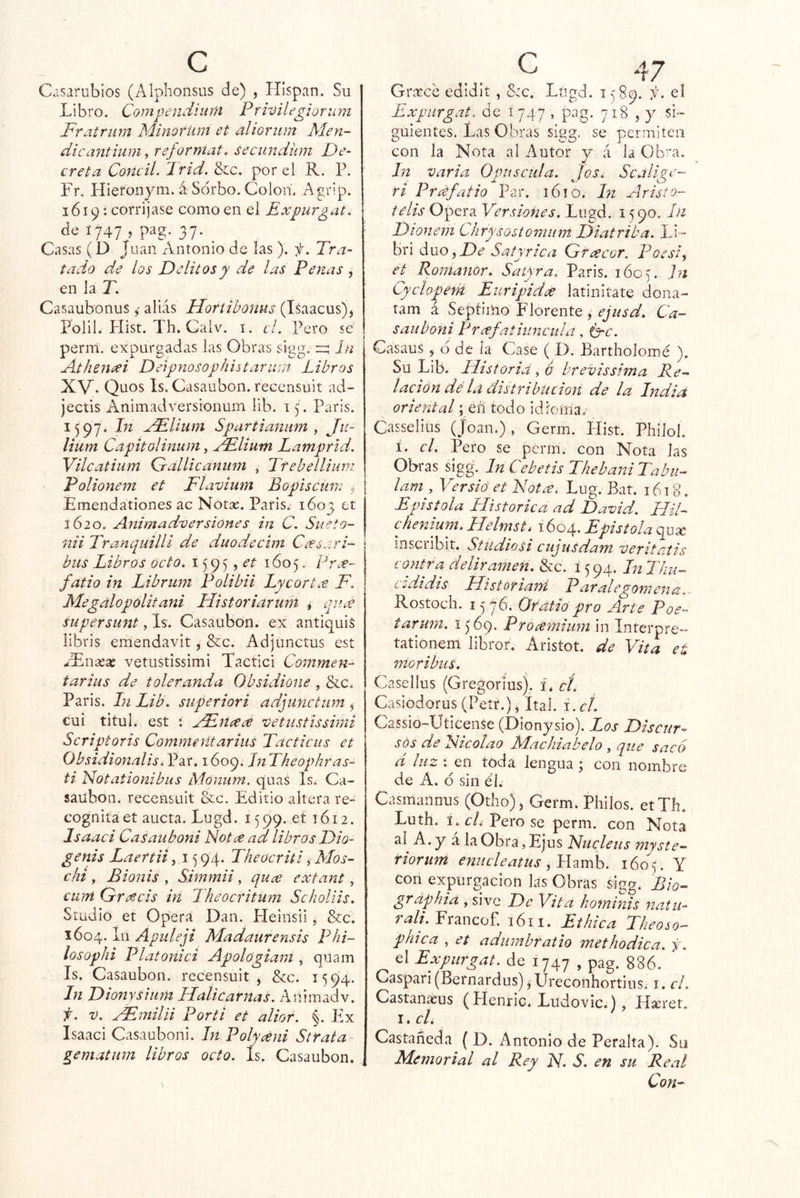 C
Casarubios (Alphonsus de) , Hispan. Su
Libro. Compendium Privilegiorum
Fratrum Minorum et aliorum Men-
dicantium, reformat. secundùm De-
creta Concil. Trid. &c. por el R. P.
Fr. Hieronym. á Sórbo. Colon. Agrip.
1619: corrijase como en el Expurgat.
de 1747, pag. 37.
Casas ( D Juan Antonio de las ). ỳ. Tra-
tado de los Delitos y de las Penas ,
en la T.
Casaubonus , aliás Hortibonus (Isaacus),
Polil. Hist. Th. Calv. 1. cl. Pero se
perm. expurgadas las Obras sigg. = In
Athenæi Deipnosophistarum Libros
XV. Quos Is. Casaubon. recensuit ad-
jectis Animadversionum lib. 15. Paris.
1597. In Ælium Spartianum , Ju-
lium Capitolinum, Ælium Lamprid.
Vilcatium Gallicanum , Trebellium
Polionem et Flavium Bopiscum ,
Emendationes ac Notæ. Paris. 1603 et
1620. Animadversiones in C. Sueto-
nii Tranquilli de duodecim Cæsari-
bus Libros octo. 1595, et 1605. Præ-
fatio in Librum Polibii Lycortæ F.
Megalopolitani Historiarum , quæ
supersunt, Is. Casaubon. ex antiquis
libris emendavit, &c. Adjunctus est
Ænææ vetustissimi Tactici Commen-
tarius de toleranda Obsidione , &c.
Paris. In Lib. superiori adjunctum ,
cui titul. est : Ænææ vetustissimi
Scriptoris Commentarius Tacticus et
Obsidionalis. Par. 1609. In Theophras-
ti Notationibus Monum. quas Is. Ca-
saubon. recensuit &c. Editio altera re-
cognita et aucta. Lugd. 1599. et 1612.
Isaaci Casauboni Notæ ad libros Dio-
genis Laertii, 1594. Theocriti, Mos-
chi , Bionis , Simmii, quæ extant ,
cum Græcis in Theocritum Scholiis.
Studio et Opera Dan. Heinsii , &c.
1604. In Apuleji Madaurensis Phi-
losophi Platonici Apologiam , quam
Is. Casaubon. recensuit , &c. 1594.
In Dionysium Halicarnas. Animadv.
ỳ. v. Æmilii Porti et alior. §. Ex
Isaaci Casauboni. In Polyæni Strata-
gematum libros octo. Is. Casaubon.
C 47
Græcè edidit , &c. Lugd. 1589. ỳ. el
Expurgat. de 1747, pag. 718 , y si-
guientes. Las Obras sigg. se permiten
con la Nota al Autor y á la Obra.
In varia Opuscula. Jos. Scalige-
ri Præfatio Par. 1610. In Aristo-
telis Opera Versiones. Lugd. 1590. In
Dionem Chrysostomum Diatriba. Li-
bri duo, De Satyrica Græcor. Poesi,
et Romanor. Satyra. Paris. 1605. In
Cyclopem Euripidæ latinitate dona-
tam á Septimo Florente , ejusd. Ca-
sauboni Præfatiuncula , &c.
Casaus , ó de la Case ( D. Bartholomé ).
Su Lib. Historia, ó brevissima Re-
lacion de la distribucion de la India
oriental ; en todo idioma.
Casselius (Joan.), Germ. Hist. Philol.
1. cl. Pero se perm. con Nota las
Obras sigg. In Cebetis Thebani Tabu-
lam , Versio et Notæ. Lug. Bat. 1618.
Epistola Historica ad David. Hil-
chenium. Helmst. 1604. Epistola quæ
inscribit. Studiosi cujusdam veritatis
contra deliramen. &c. 1594. In Thu-
cididis Historiam Paralegomena.
Rostoch. 1576. Oratio pro Arte Poe-
tarum. 1569. Proæmium in Interpre-
tationem libror. Aristot. de Vita et
moribus.
Casellus (Gregorius). 1. cl.
Casiodorus (Petr.), Ital. 1. cl.
Cassio-Uticense (Dionysio). Los Discur-
sos de Nicolao Machiabelo , que sacó
á luz : en toda lengua ; con nombre
de A. ó sin él.
Casmannus (Otho), Germ. Philos. et Th.
Luth. 1. cl. Pero se perm. con Nota
al A. y á la Obra, Ejus Nucleus myste-
riorum enucleatus, Hamb. 1605. Y
con expurgacion las Obras sigg. Bio-
graphia , sive De Vita hominis natu-
rali. Francof. 1611. Ethica Theoso-
phica , et adumbratio methodica. ỳ.
el Expurgat. de 1747 , pag. 886.
Caspari (Bernardus), Ureconhortius. 1. cl.
Castanæus (Henric. Ludovic.), Hæret.
1. cl.
Castañeda ( D. Antonio de Peralta). Su
Memorial al Rey N. S. en su Real
Con-